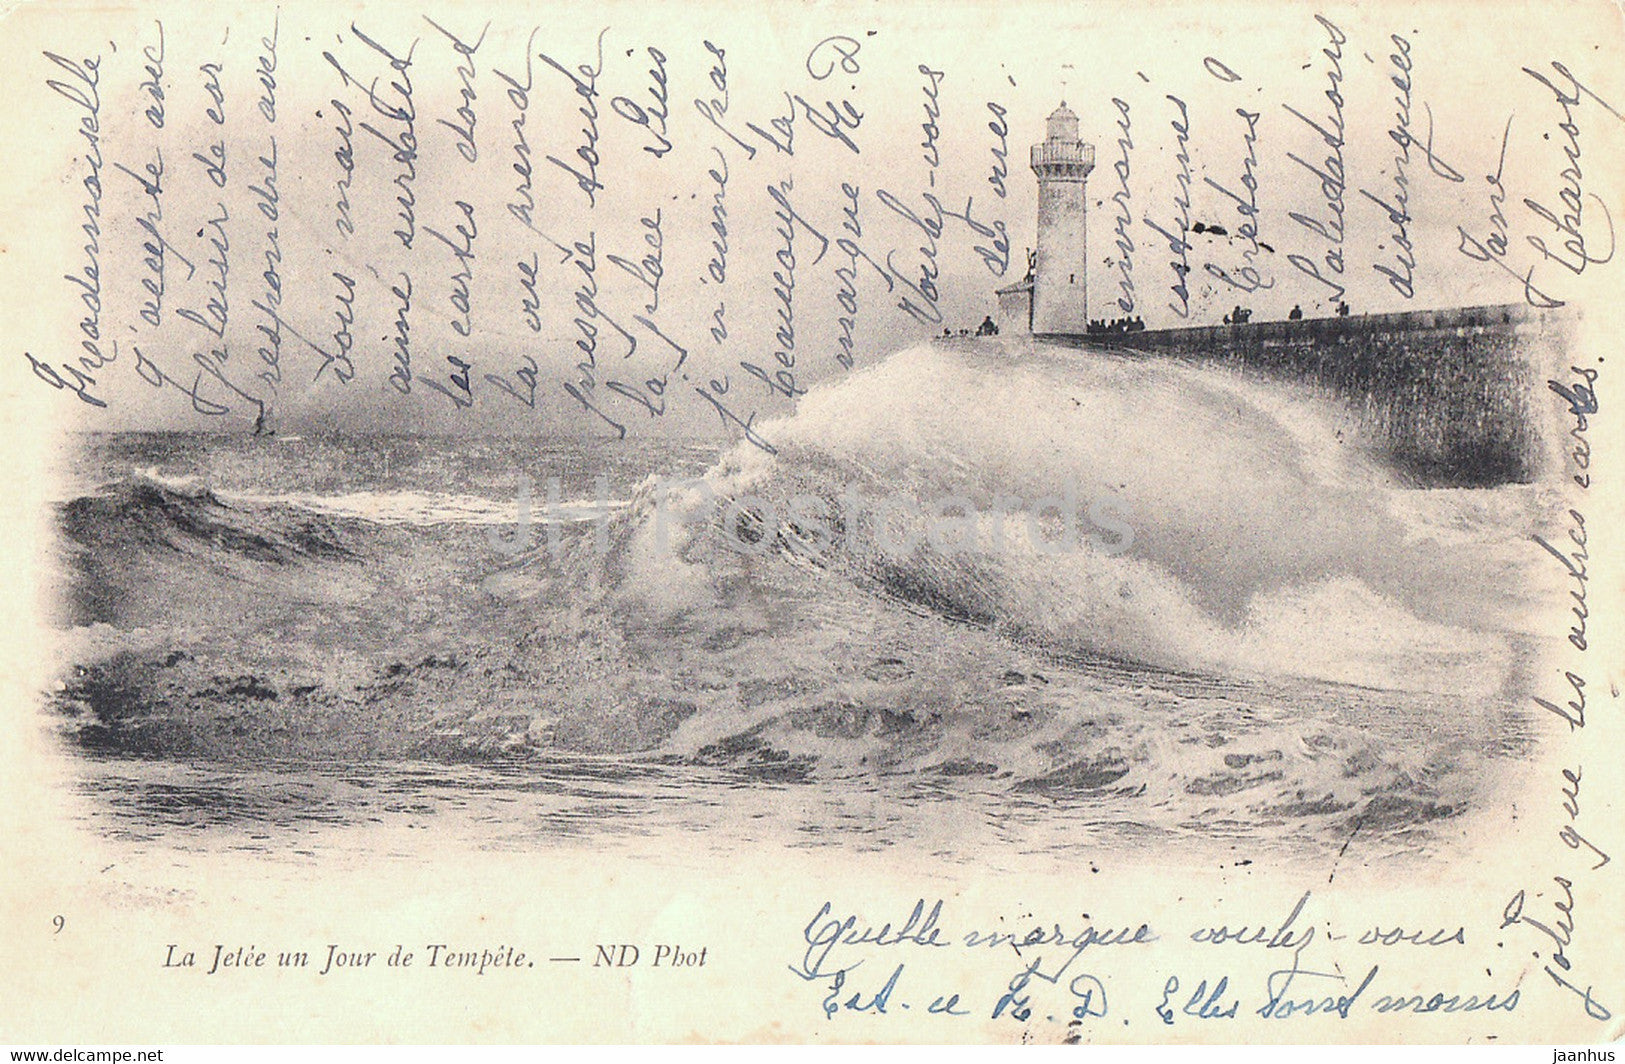 Mademoiselle,
J'accepte avec
plaisir de cor-
respondre avec
vous mais j'
aime surtout
les cartes dont
la vue prend
presque toute
la place. Puis
je n'aime pas
beaucoup la
marque N. D.
Voulez-vous
des vues,
environs,
costumes
Bretons?
Salutations
distinguées.
Jane
Chariot
Quelle marque voulez-vous?
Est-ce N. D. Elles sont moins
jolies que les autres cartes.
9
La Jetée un Jour de Tempête. — ND Phot
JH Postcards
www.jh-postcards.com
jaanhus